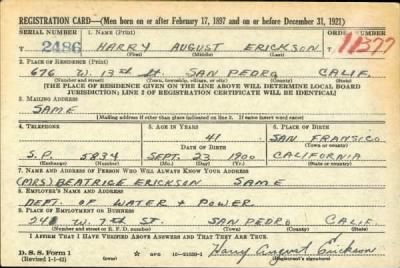 REGISTRATION CARD—(Men born on or after February 17, 1897 and on or before December 31, 1921)
SERIAL NUMBER 1. NAME (Print) ORDER NUMBER
T 2486 HARRY AUGUST ERICKSON T 11377
(First) (Middle) (Last)
2. PLACE OF RESIDENCE (Print)
676 W. 13th St. SAN PEDRO CALIF.
(Number and street) (Town, township, village, or city) (County) (State)
[THE PLACE OF RESIDENCE GIVEN ON THE LINE ABOVE WILL DETERMINE LOCAL BOARD
JURISDICTION; LINE 2 OF REGISTRATION CERTIFICATE WILL BE IDENTICAL]
3. MAILING ADDRESS
SAME
[Mailing address if other than place indicated on line 2. If same insert word same]
4. TELEPHONE 5. AGE IN YEARS 6. PLACE OF BIRTH
41 SAN FRANSICO
DATE OF BIRTH (Town or county)
S.P. 5834 SEPT. 23 1900 CALIFORNIA
(Exchange) (Number) (Mo.) (Day) (Yr.) (State or country)
7. NAME AND ADDRESS OF PERSON WHO WILL ALWAYS KNOW YOUR ADDRESS
(MRS) BEATRICE ERICKSON SAME
8. EMPLOYER'S NAME AND ADDRESS
DEPT. OF WATER & POWER
9. PLACE OF EMPLOYMENT OR BUSINESS
W. 7th ST. SAN PEDRO CALIF.
(Number and street or R. F. D. number) (Town) (County) (State)
I AFFIRM THAT I HAVE VERIFIED ABOVE ANSWERS AND THAT THEY ARE TRUE.
D. S. S. Form 1
(Revised 1-1-42) (over) GPO Harry August Erickson
(Registrant's signature)